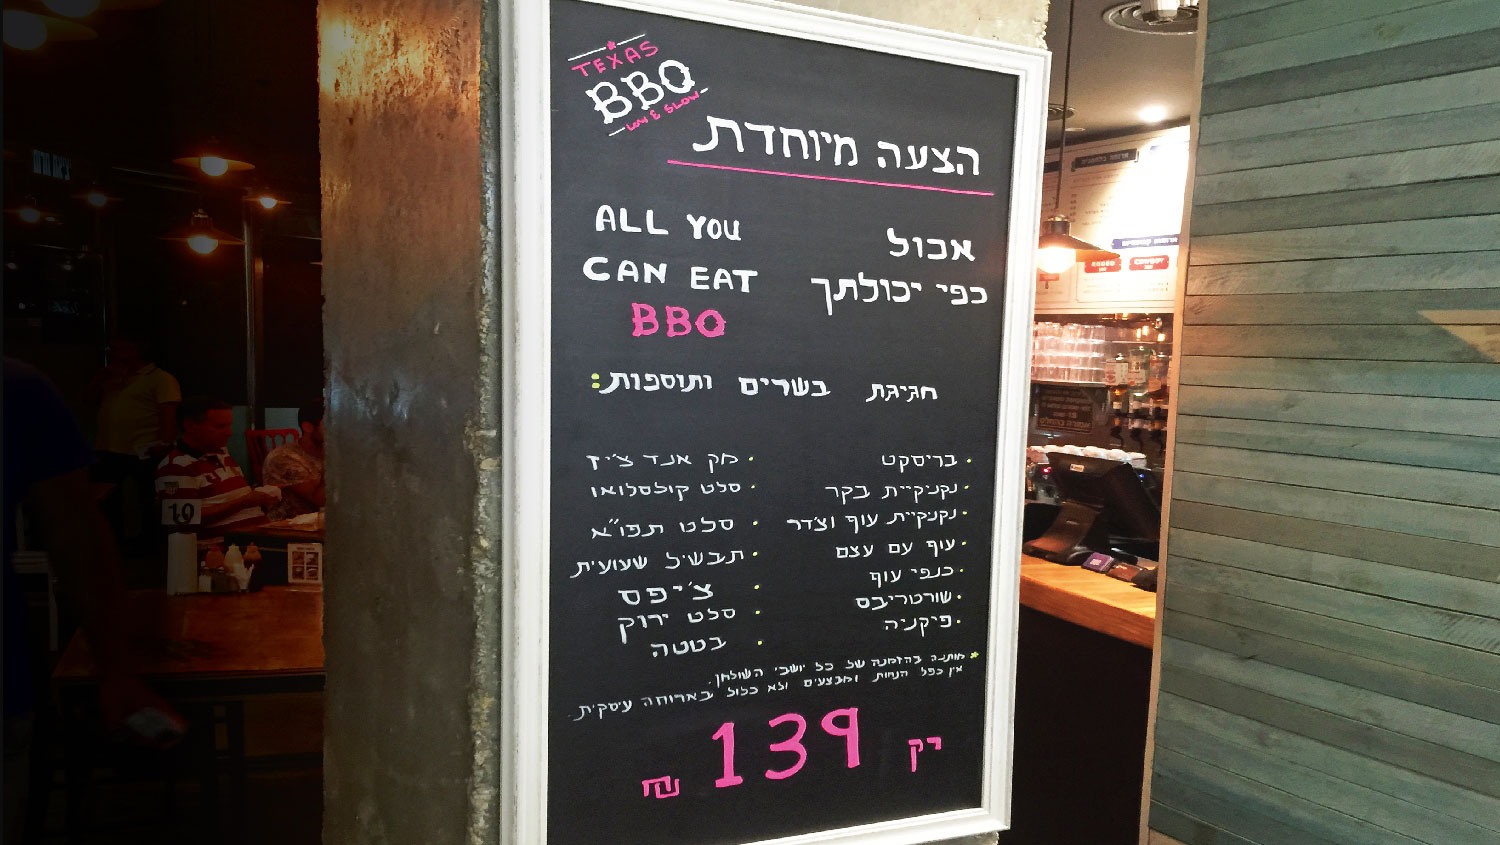 TEXAS
BBQ
LOW & SLOW
הצעה מיוחדת
אכול
כפי יכולתך
ALL YOU
CAN EAT
BBQ
חגיגת בשרים ותוספות:
• בריסקט
• נקניקיית בקר
• נקניקיית עוף וצ'דר
• עוף עם עצם
• כנפי עוף
• שורטריבס
• פיקניה
• מק אנד צ'יז
• סלט קולסלואו
• סלט תפו"א
• תבשיל שעועית
• צ'יפס
• סלט ירוק
• בטטה
* מותנה בהזמנה של כל יושבי השולחן.
אין כפל הנחות ומבצעים ולא כלול בארוחה עיסקית.
רק 139 ₪
19
RODEO
COWBOY